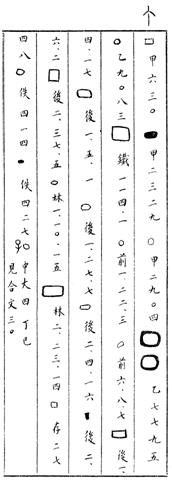 甲六三〇 甲二三二九 甲二九〇四 乙七七九五
乙九〇八三 鐵一一四.一 前一.二二.三 前六.八.七 後一.
四.一七 後一.五.一 後一.二七.七 後二.四.一六 後二.
六.二 後二.三七.五 林一.一〇.一五 林二.二三.一四 存二七
四八 佚四一四 佚四二七 大四 丁巳 見合文三〇